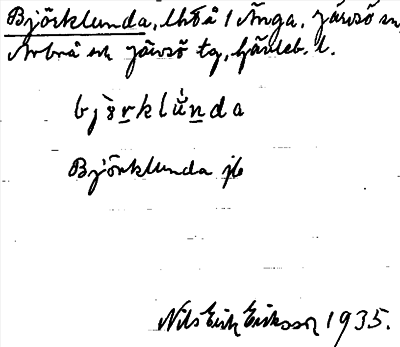 Björklunda, lht å 1 Änga, Järvsö sn,
Arbrå och Järvsö tg, Gävleb. l.
björklùnda
Björklunda jb
Nils Erik Eriksson 1935.